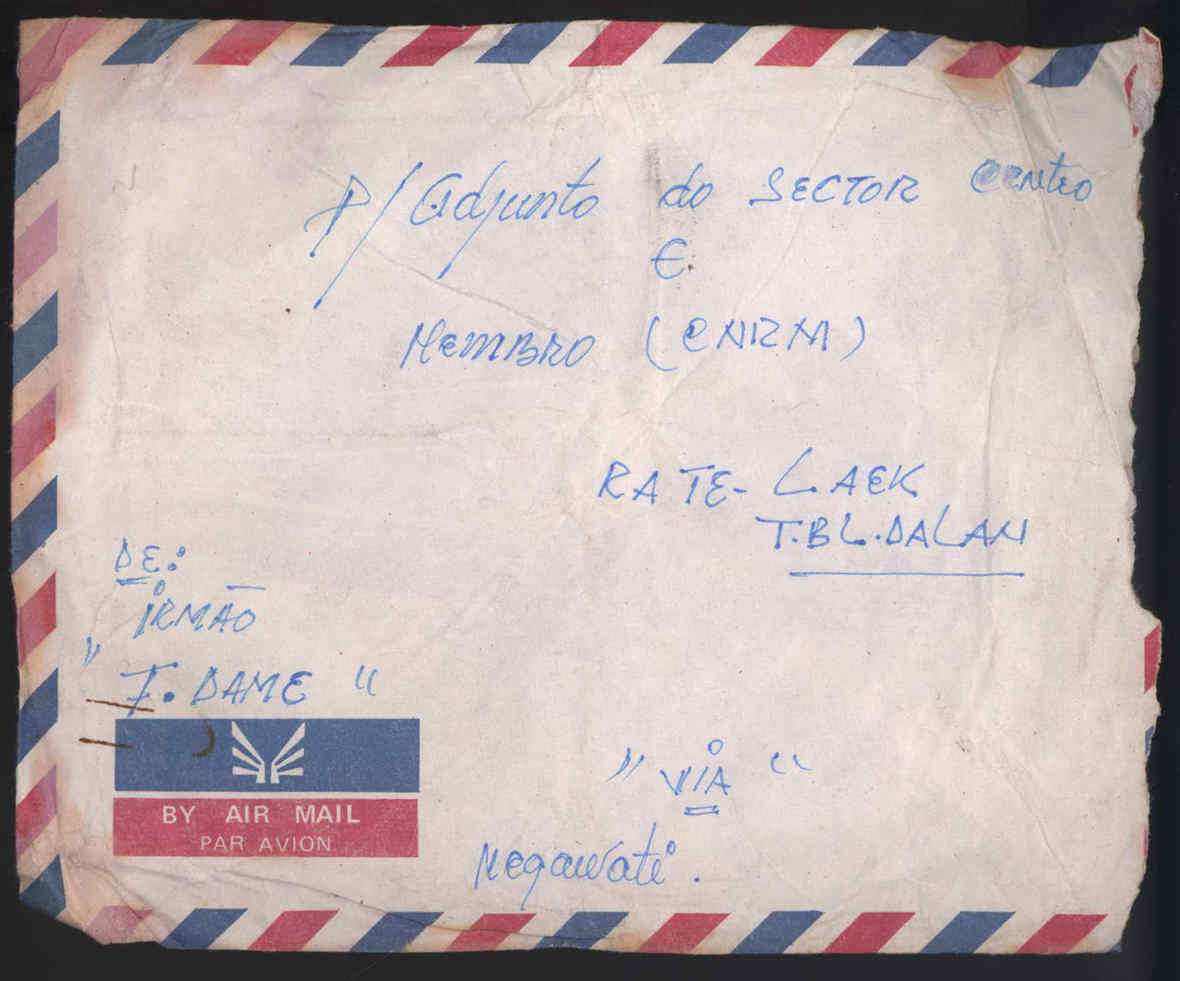 P/Adjunto do SECTOR CENTRO
E
MEMBRO (CNRM)
RATE-LAEK
T.BL.DALAN
DE:
IRMÃO
" F. DAME "
BY AIR MAIL
PAR AVION
" VIA "
Megawati.